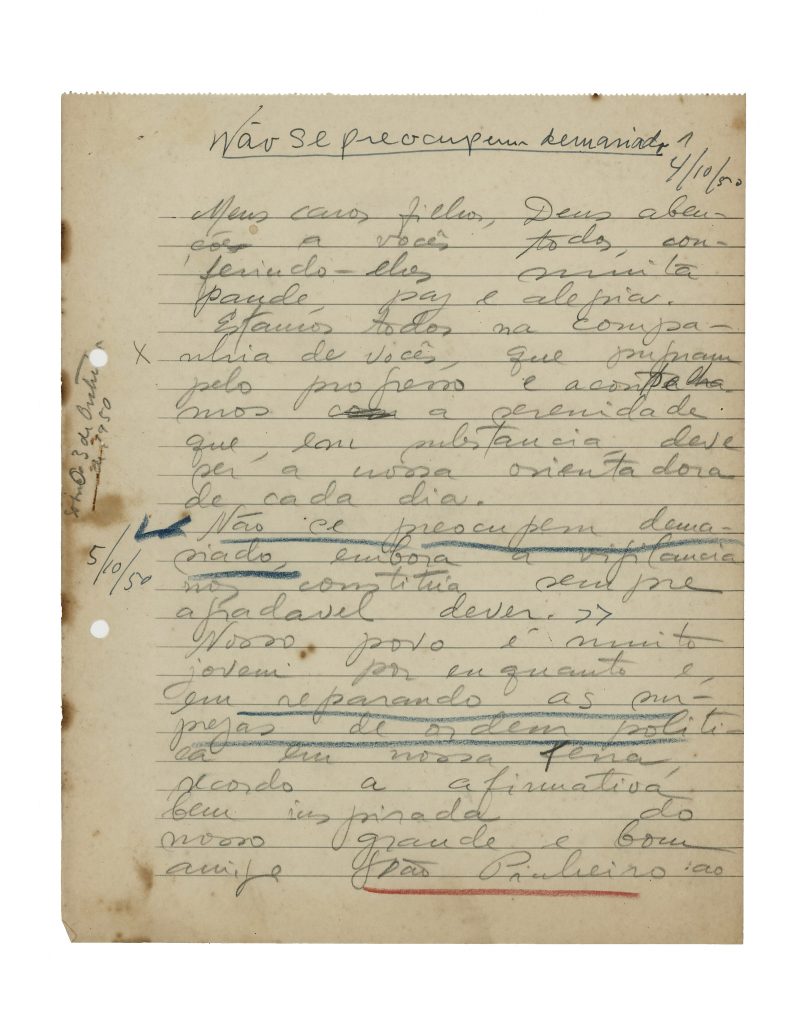 Não se preocupem demasiado
1
4/10/50
Meus caros filhos, Deus aben-
çõe a vocês todos, con-
ferindo-lhes muita
paude, paz e alegria.
Estamos todos na compa-
X nhia de vocês, que pugnam
pelo progresso e acompanha-
mos com a serenidade
que, em substancia, deve
ser a nossa orientadora
de cada dia.
3 de Outubro
de 1950
Não se preocupem dema-
siado, embora a vigilancia
5/10/50
nos constitua sempre
agradavel dever. >>
Nosso povo é muito
jovem por enquanto e,
em reparando as sur-
prezas de ordem politi-
ca em nossa terra,
recordo a afirmativa
bem inspirada do
nosso grande e bom
amigo João Pinheiro: ao